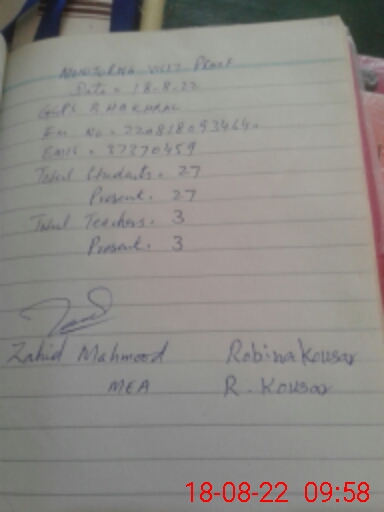 MONITORING VISIT PROOF
Date = 18.8.22
GGPS BHAKHRAL
EMIS = 37370459
Total Students = 27
Present = 27
Total Teachers = 3
Present = 3
Zahid Mahmood Robina Kousar
MEA R. Kousar
18-08-22 09:58